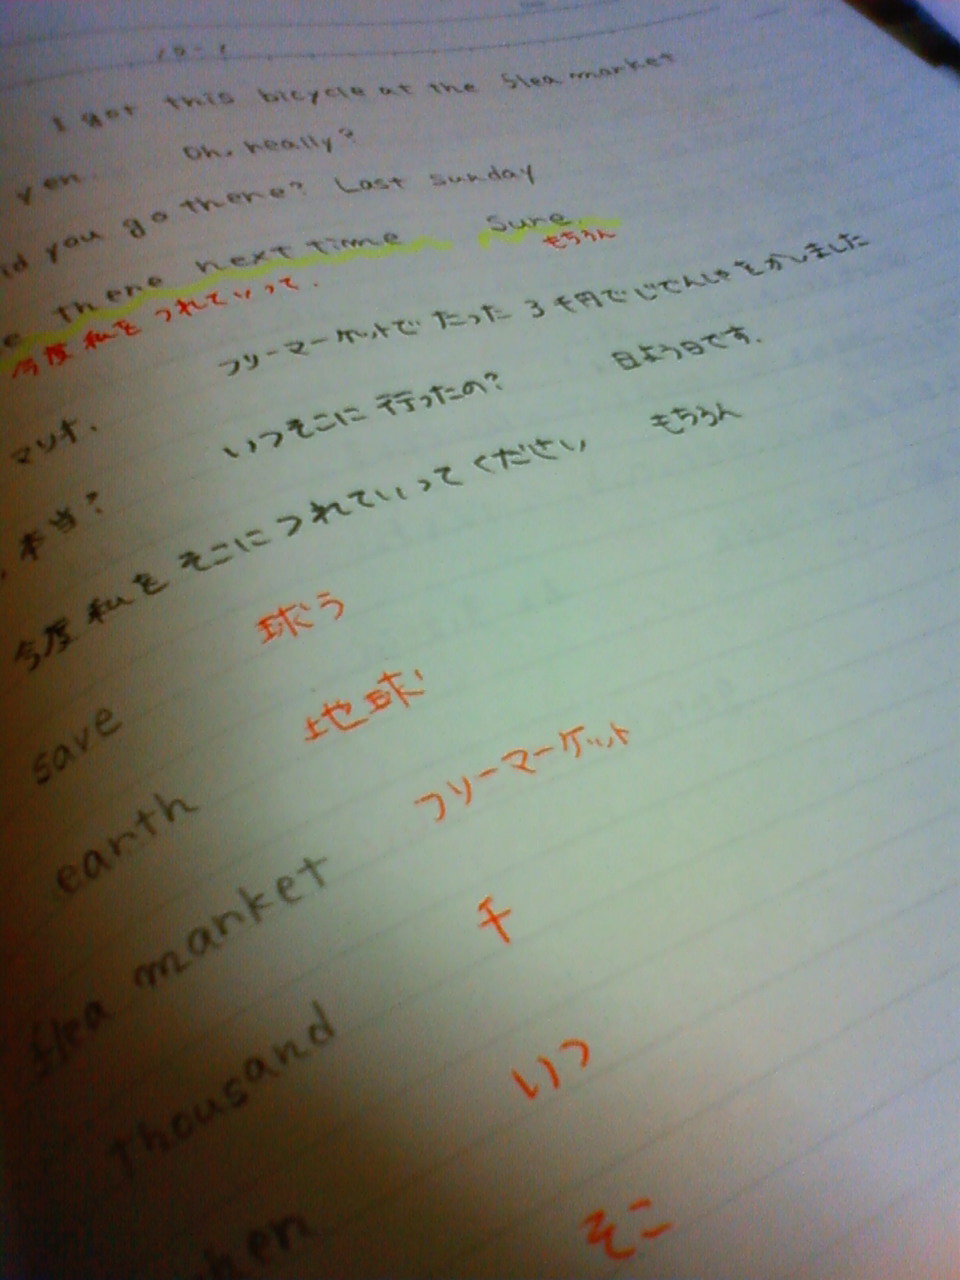 10-1
I got this bicycle at the flea market
yen. Oh, really?
id you go there? Last sunday
e there next time Sure.
今度 私を つれていって. もちろん
フリーマーケットで たった 3千円で じてんしゃを かしました
マリオ. いつそこに 行ったの? 日よう日です.
本当? 
今度 私を そこに つれていって ください もちろん
save 球う
earth 地球
flea market フリーマーケット
thousand 千
hen いつ
そこ